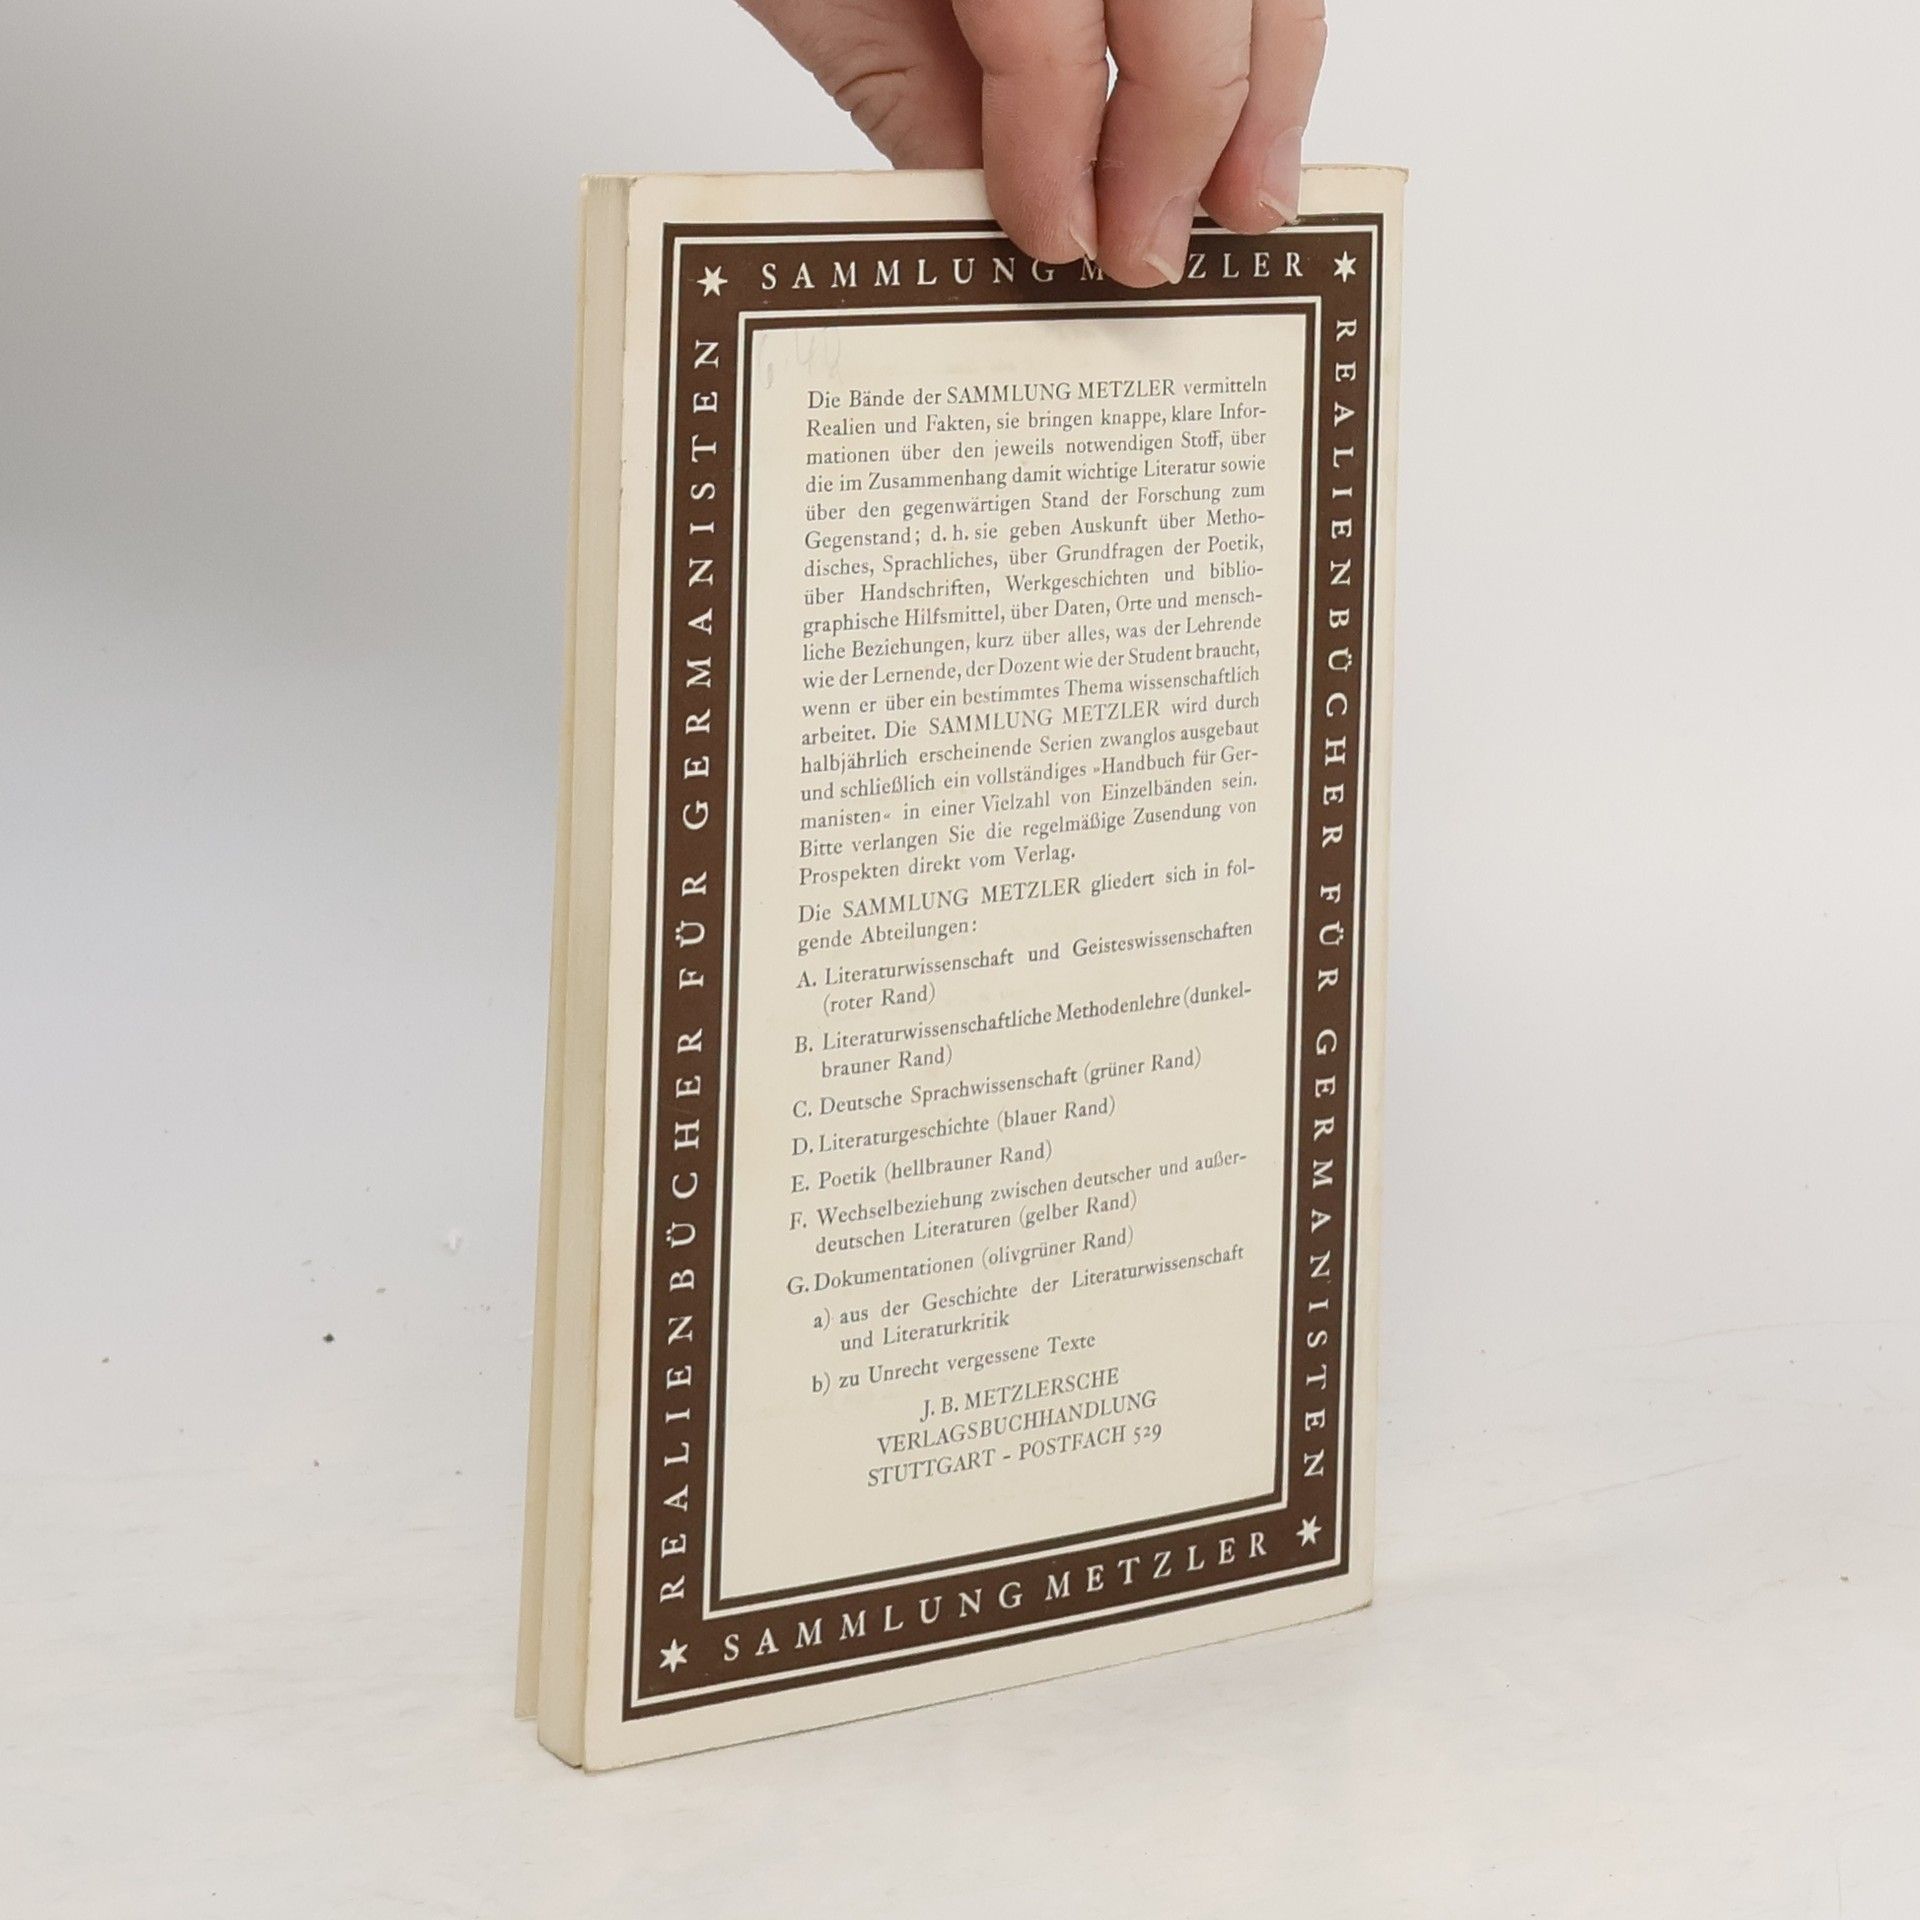 SAMMLUNG M ZLER
REALIENBÜCHER FÜR GERMANISTEN
REALIENBÜCHER FÜR GERMANISTEN
Die Bände der SAMMLUNG METZLER vermitteln
Realien und Fakten, sie bringen knappe, klare Infor-
mationen über den jeweils notwendigen Stoff, über
die im Zusammenhang damit wichtige Literatur sowie
über den gegenwärtigen Stand der Forschung zum
Gegenstand; d. h. sie geben Auskunft über Metho-
disches, Sprachliches, über Grundfragen der Poetik,
über Handschriften, Werkgeschichten und biblio-
graphische Hilfsmittel, über Daten, Orte und mensch-
liche Beziehungen, kurz über alles, was der Lehrende
wie der Lernende, der Dozent wie der Student braucht,
wenn er über ein bestimmtes Thema wissenschaftlich
arbeitet. Die SAMMLUNG METZLER wird durch
halbjährlich erscheinende Serien zwanglos ausgebaut
und schließlich ein vollständiges »Handbuch für Ger-
manisten« in einer Vielzahl von Einzelbänden sein.
Bitte verlangen Sie die regelmäßige Zusendung von
Prospekten direkt vom Verlag.
Die SAMMLUNG METZLER gliedert sich in fol-
gende Abteilungen:
A. Literaturwissenschaft und Geisteswissenschaften
(roter Rand)
B. Literaturwissenschaftliche Methodenlehre (dunkel-
brauner Rand)
C. Deutsche Sprachwissenschaft (grüner Rand)
D. Literaturgeschichte (blauer Rand)
E. Poetik (hellbrauner Rand)
F. Wechselbeziehung zwischen deutscher und außer-
deutschen Literaturen (gelber Rand)
G. Dokumentationen (olivgrüner Rand)
a) aus der Geschichte der Literaturwissenschaft
und Literaturkritik
b) zu Unrecht vergessene Texte
J. B. METZLERSCHE
VERLAGSBUCHHANDLUNG
STUTTGART - POSTFACH 529
SAMMLUNG METZLER